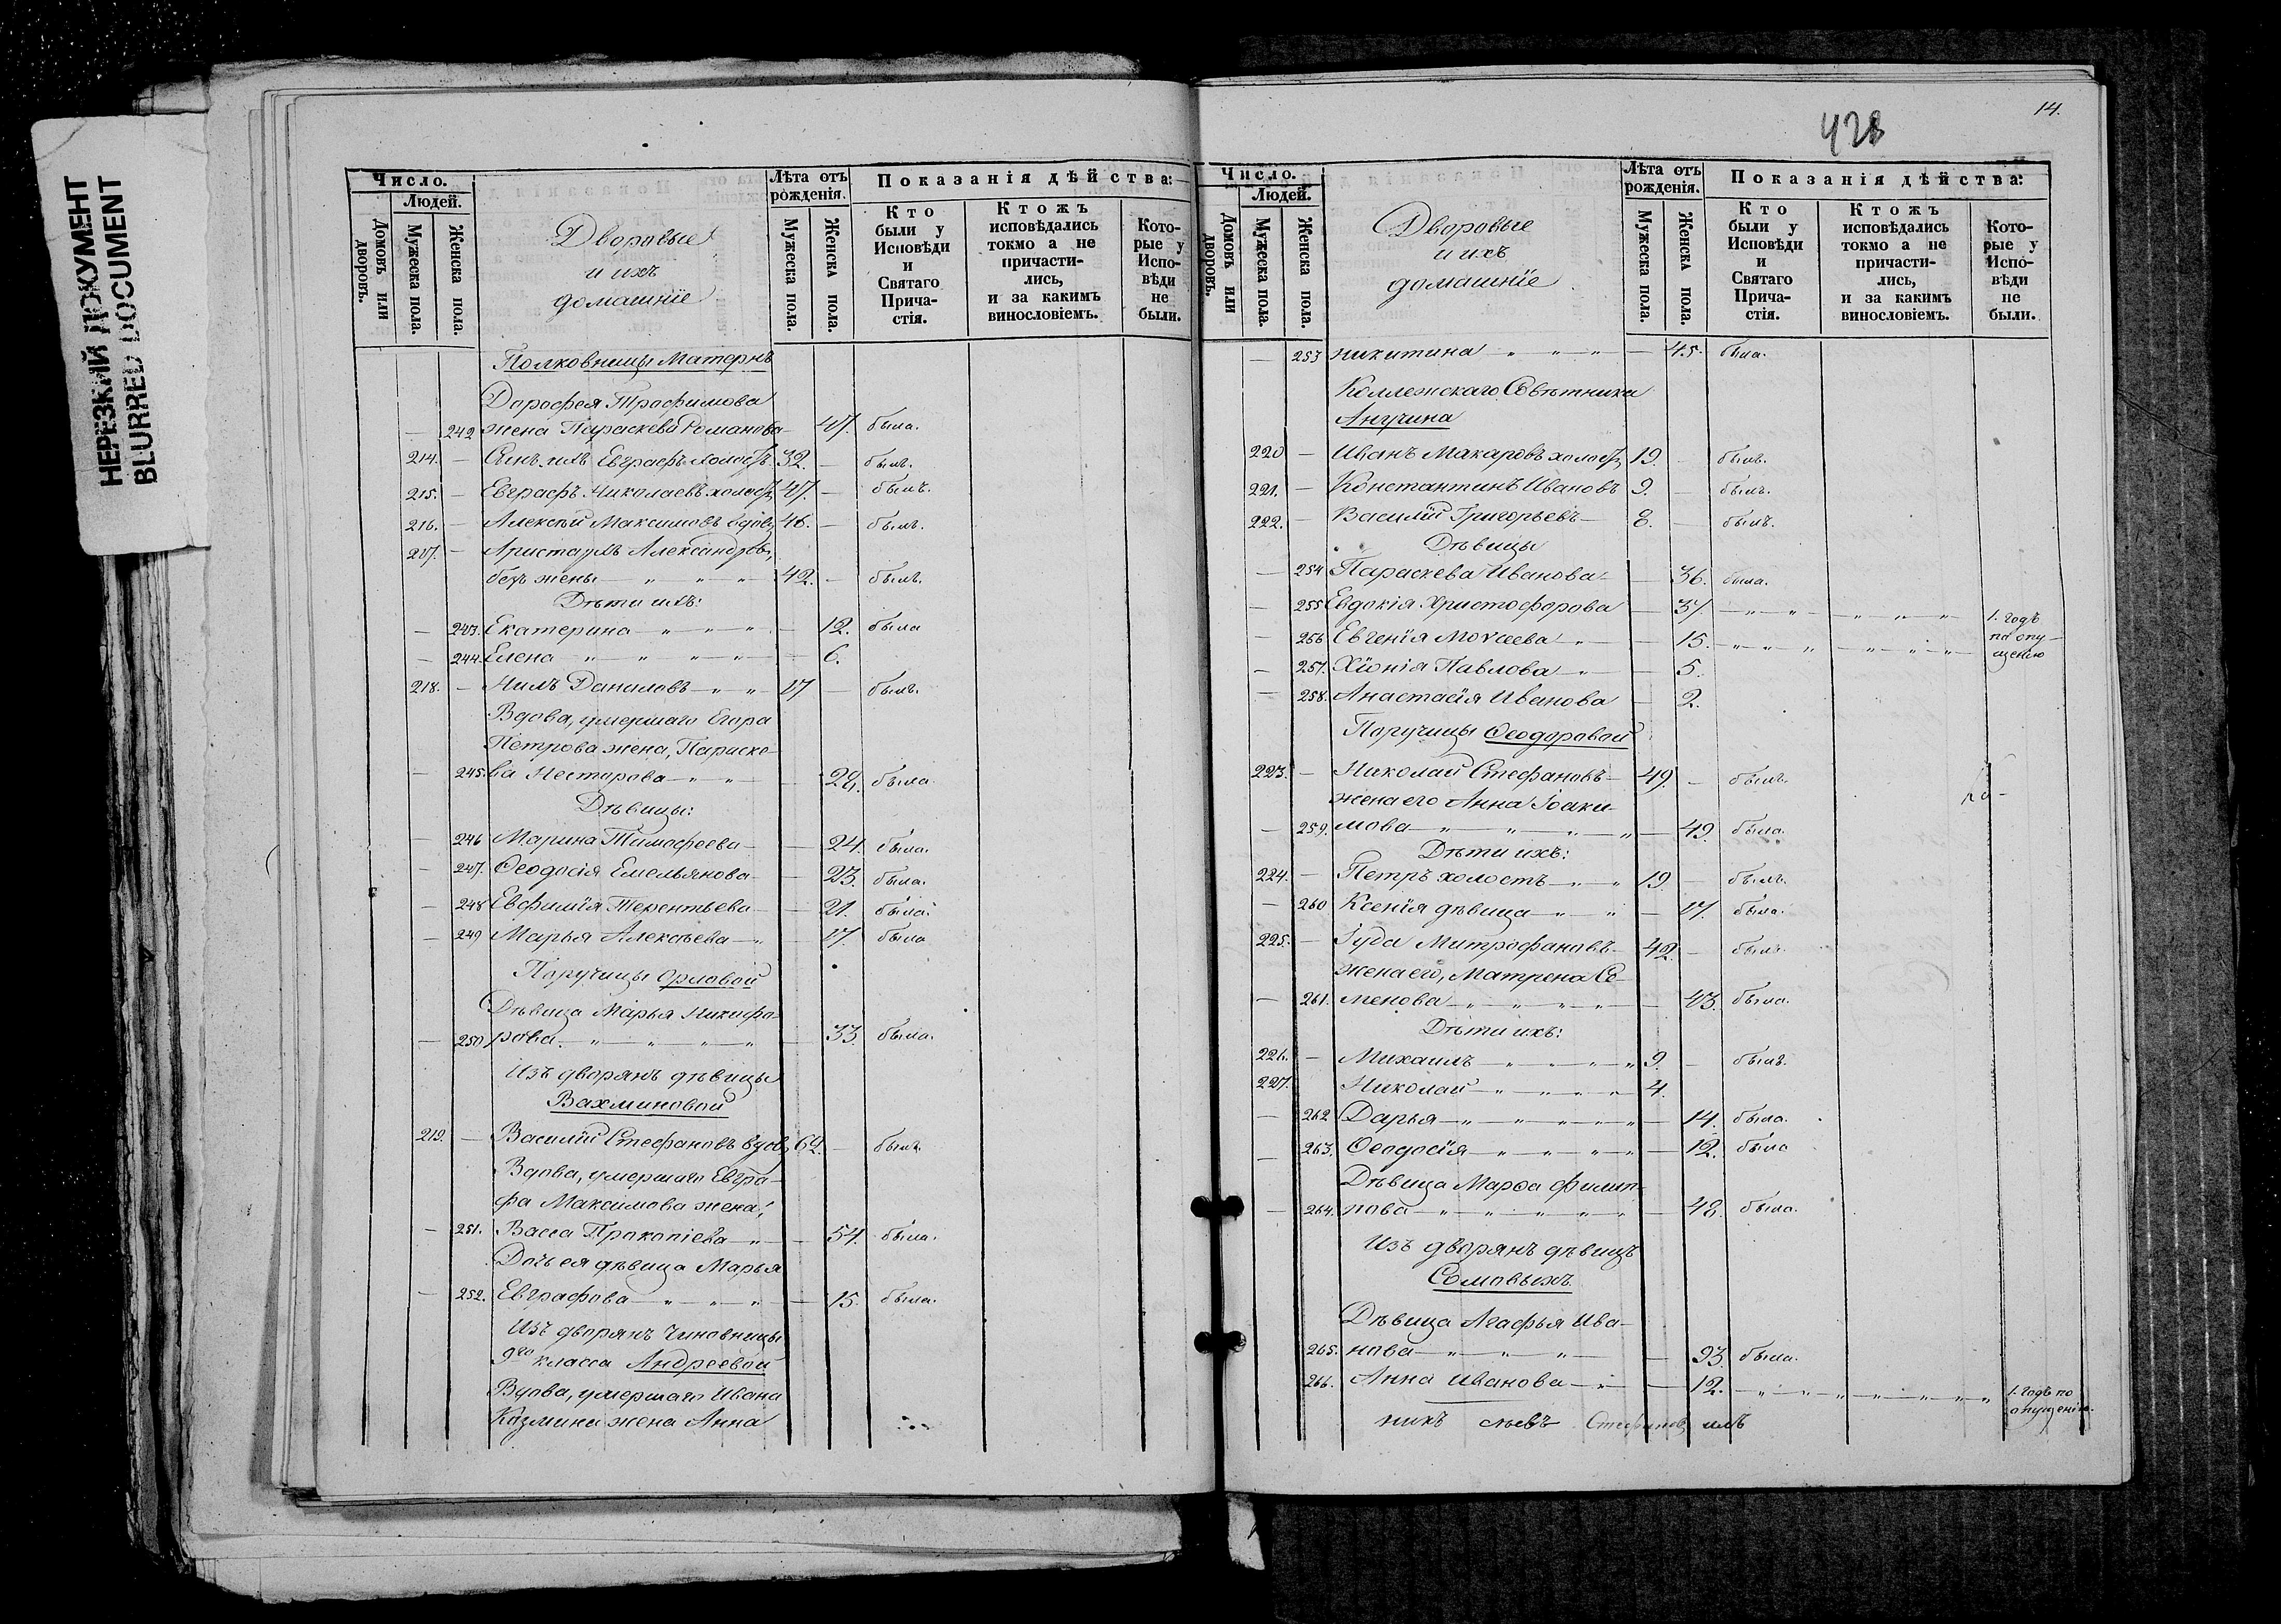 НЕРЕЗКИЙ ДОКУМЕНТ
BLURRED DOCUMENT
Число.
Людей.
Домовъ или дворовъ.
Мужеска пола.
Женска пола.
Дворовые
и ихъ
домашніе
Лѣта отъ рожденія.
Мужеска пола.
Женска пола.
Показанія дѣйства:
Кто были у Исповѣди и Святаго Прича-стія.
Ктожъ исповѣдались токмо а не причасти-лись, и за какимъ винословіемъ.
Кото-рые у Испо-вѣди не были.
Полковницы Матернъ
Дорофея Трофимова
— 242 жена Параскева Романова — 47. была.
214. — Сынъ ихъ Евграфъ холостъ 32. — былъ.
215. — Евграфъ Николаевъ холостъ 47. — былъ.
216. — Алексѣй Максимовъ вдовъ 46. — былъ.
217. — Аристархъ Александровъ,
безъ жены „ „ „ 42. — былъ.
Дѣти ихъ:
— 243. Екатерина — „ — „ — „ — 12. была
— 244. Елена „ — „ — „ — „ — 6.
218. — Нилъ Даниловъ — „ — „ — 17 — былъ.
Вдова, умершаго Егора
Петрова жена, Параске-
— 245. ва Нестерова — „ — „ — 28. была
Дѣвицы:
— 246 Марина Тимофеева — — 24. была.
— 247. Ѳеодосія Емельянова — — 23. была.
— 248 Евфимія Терентьева — — 21. была.
— 249 Марья Алексѣева — „ — 17. была
Поручицы Орловой
Дѣвица Марья Никифо-
— 250 рова. — „ — „ — „ — „ — 33. была.
Изъ дворянъ дѣвицы
Вахминовой
219. — Василій Стефановъ вдовъ 62. — былъ.
Вдова, умершаго Евгра-
фа Максимова жена,
— 251. Васса Прокопіева — „ — 54. была.
Дочь ея дѣвица Марья
— 252. Евграфова — „ — „ — „ — 15. была.
Изъ дворянъ Чиновницы
9го класса Андреевой
Вдова, умершаго Ивана
Козмина жена Анна
14.
428
Число.
Людей.
Домовъ или дворовъ.
Мужеска пола.
Женска пола.
Дворовые
и ихъ
домашніе
Лѣта отъ рожденія.
Мужеска пола.
Женска пола.
Показанія дѣйства:
Кто были у Исповѣди и Святаго Прича-стія.
Ктожъ исповѣдались токмо а не причасти-лись, и за какимъ винословіемъ.
Кото-рые у Испо-вѣди не были.
— 253 Никитина „ — „ — „ — 45. была.
Коллежскаго Совѣтника
Анучина
220 — Иванъ Макаровъ холостъ 19. — былъ.
221. — Константинъ Ивановъ 9. — былъ.
222. — Василій Григорьевъ — 8. — былъ.
Дѣвицы
— 254 Параскева Иванова — — 36. была.
— 255 Евдокія Христофорова — 37 — „ — „ — „ — „ — „ — 1. годъ
— 256 Евгенія Моѵсеева „ — 15. — „ — „ — „ — „ — „ — по опу-
щенію
— 257. Хіонія Павлова — „ — 5.
— 258. Анастасія Иванова — 2.
Поручицы Ѳеодоровой
223. — Николай Стефановъ — 49. — былъ.
жена его Анна Іоаки-
— 259. мова — „ — „ — „ — „ — 49. была.
Дѣти ихъ:
224. — Петръ холостъ — „ — „ 19. — былъ.
— 260 Ксенія дѣвица — „ — „ — 17. была.
225. — Іуда Митрофановъ — 42. — былъ
жена его, Матрена Се-
— 261. менова — „ — „ — „ — „ — 43. была.
Дѣти ихъ:
226. — Михаилъ — „ — „ — „ — „ 9. — былъ.
227. Николай — „ — „ — „ — „ 4.
— 262 Дарья — „ — „ — „ — „ — 14. была.
— 263. Ѳеодосія — „ — „ — „ — „ — 12. была
Дѣвица Марѳа Филип-
— 264. пова — „ — „ — „ — „ — 48. была.
Изъ дворянъ дѣвицъ
Сомовыхъ.
Дѣвица Агафья Ива-
265. нова — „ — „ — „ — 93. была.
266. Анна Иванова — „ — 12. — „ — „ — „ — „ — „ — 1. годъ по
опущенію.